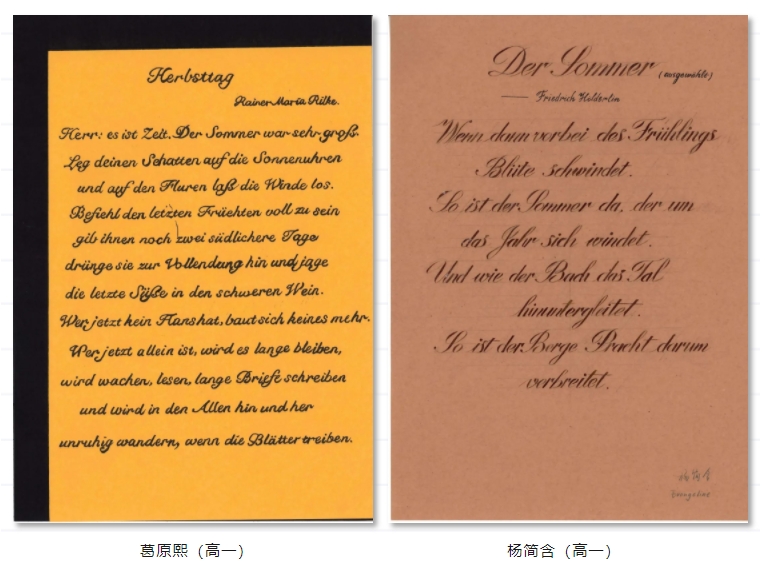 Herbsttag
Rainer Maria Rilke.
Herr: es ist Zeit. Der Sommer war sehr groß.
Leg deinen Schatten auf die Sonnenuhren
und auf den Fluren laß die Winde los.
Befiehl den letzten Früchten voll zu sein
gib ihnen noch zwei südlichere Tage
dränge sie zur Vollendung hin und jage
die letzte Süße in den schweren Wein.
Wer jetzt kein Haus hat, baut sich keines mehr.
Wer jetzt allein ist, wird es lange bleiben,
wird wachen, lesen, lange Briefe schreiben
und wird in den Allen hin und her
unruhig wandern, wenn die Blätter treiben.
Der Sommer (ausgewählt)
—— Friedrich Hölderlin
Wenn dann vorbei des Frühlings
Blüte schwindet.
So ist der Sommer da, der um
das Jahr sich windet.
Und wie der Bach das Tal
hinuntergleitet.
So ist der Berge Pracht darum
verbreitet.
葛原熙（高一）
杨简含（高一）